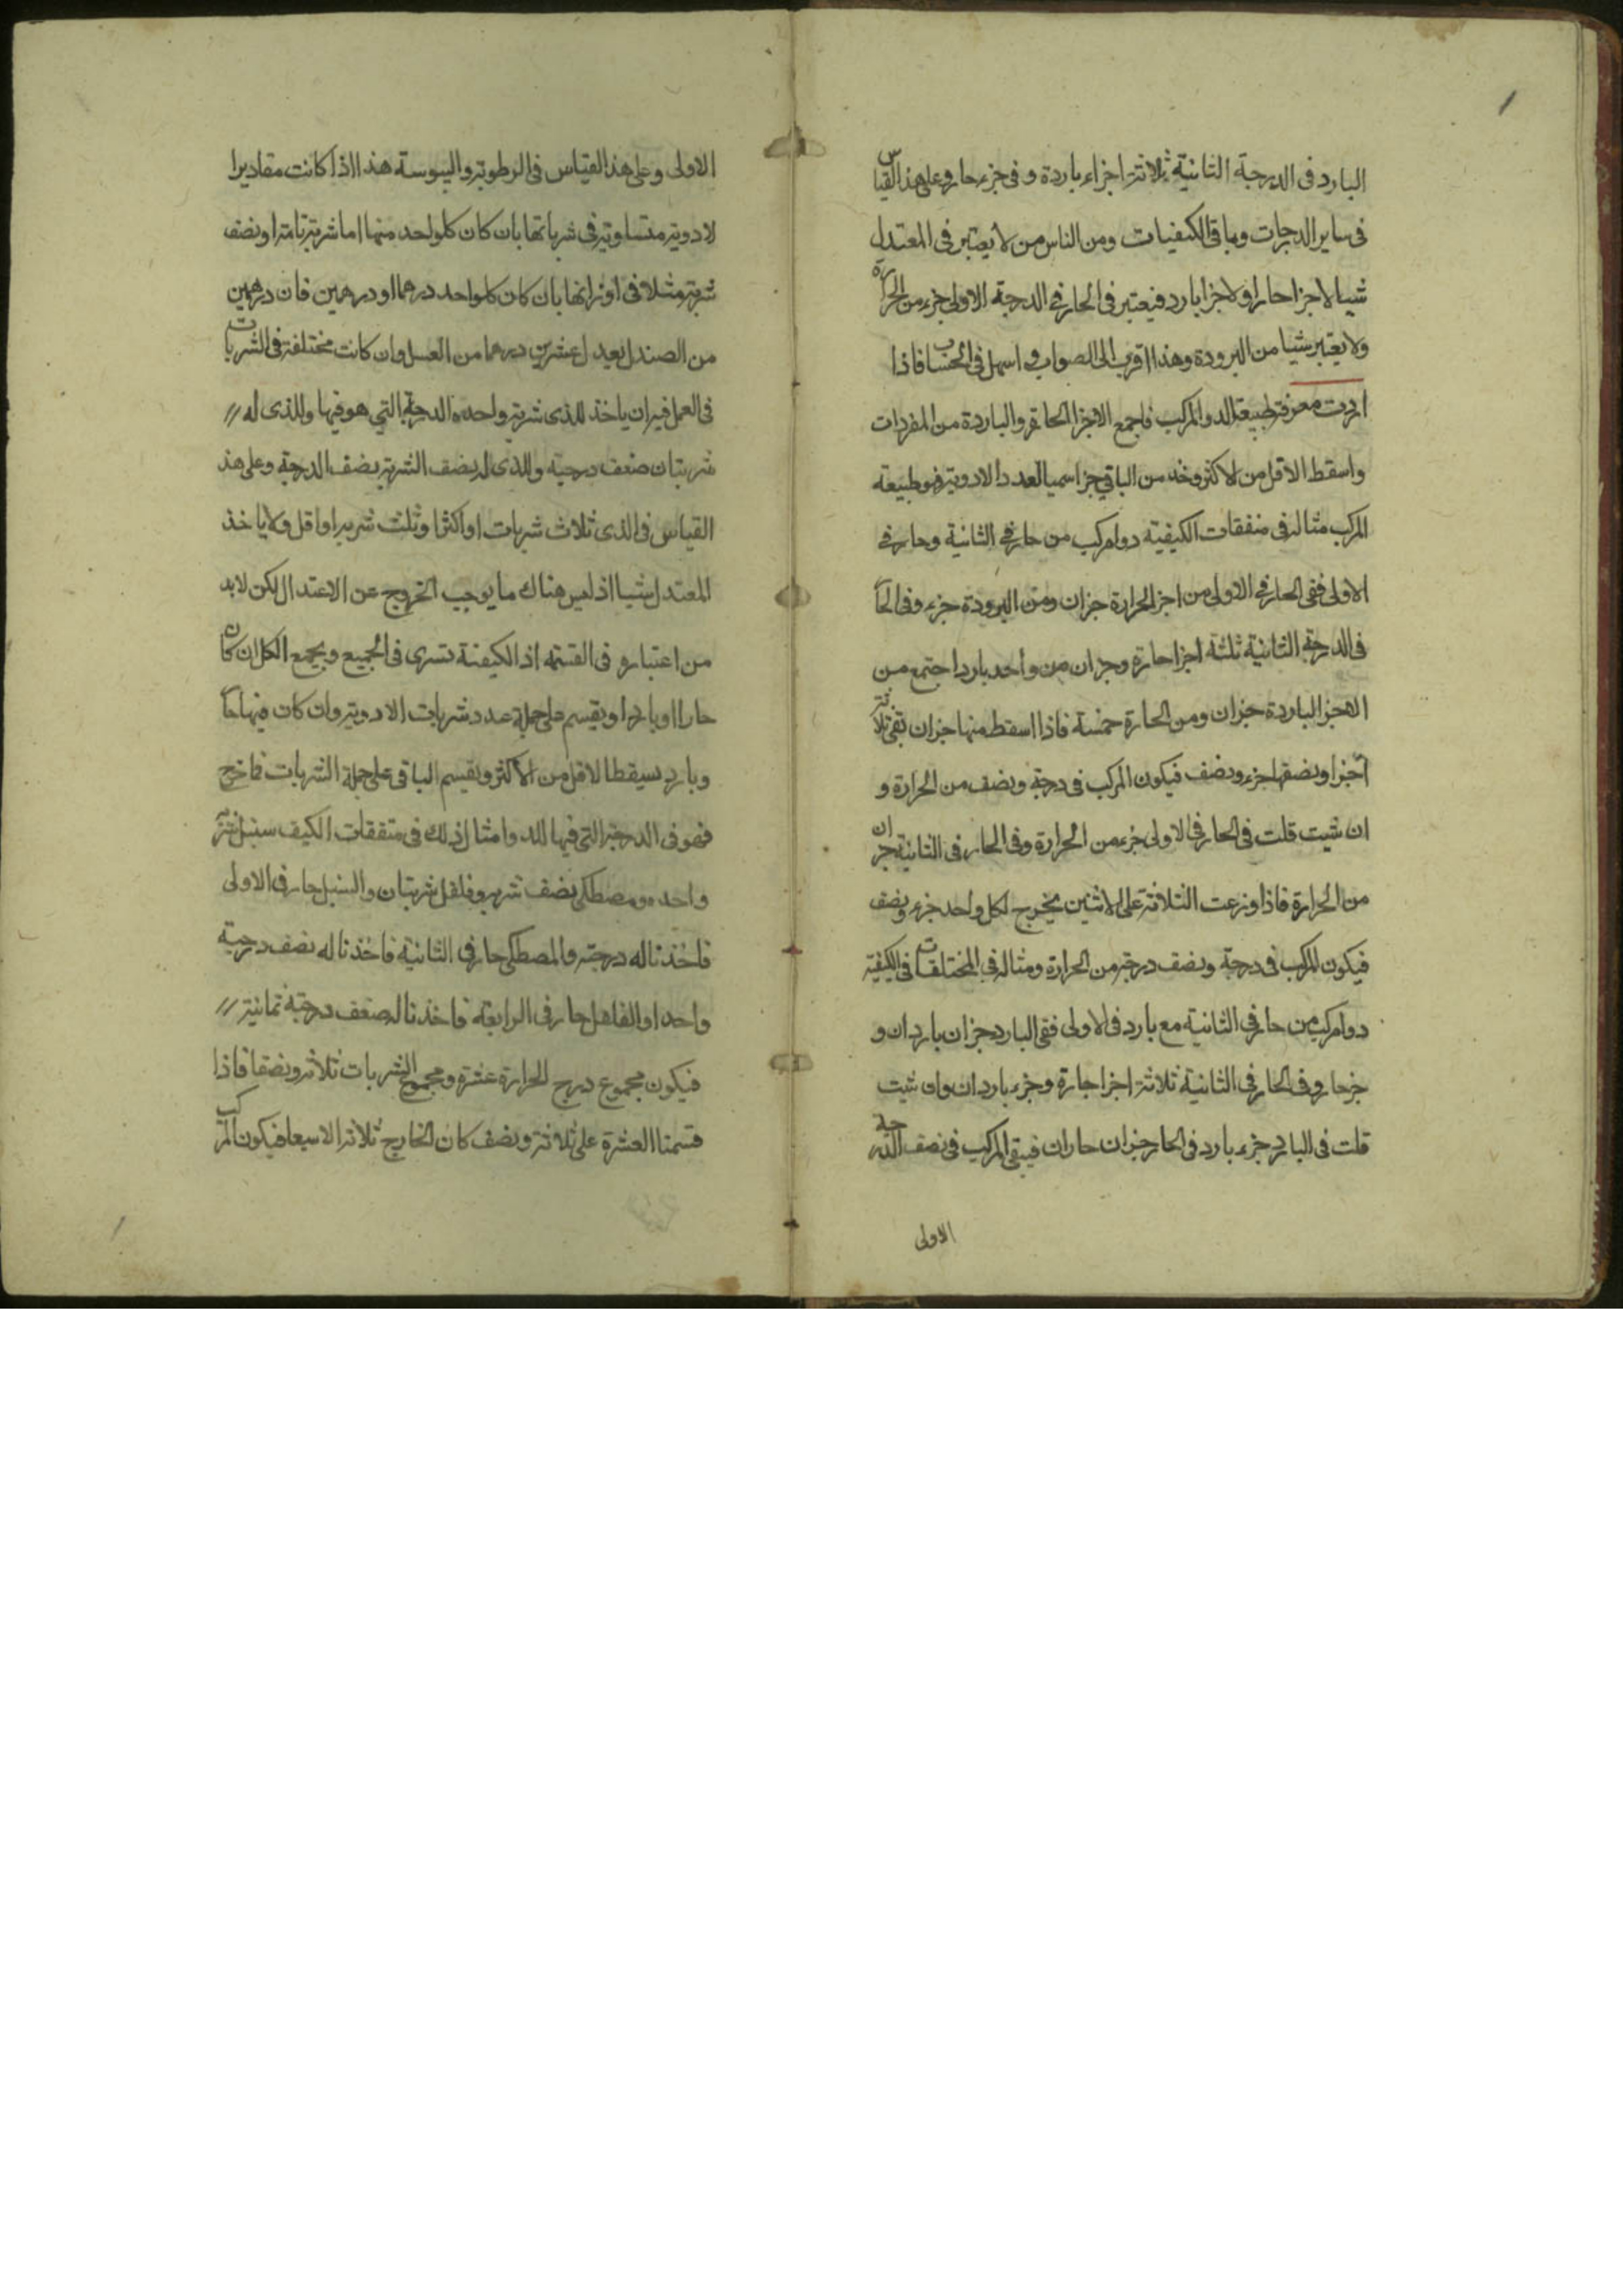 البارد فى الدرجة الثانية ثلاثة اجزاء باردة و فى جزء حار وعلى هذا القياس
فى ساير الدرجات وباقى الكيفيات ومن الناس من لا يعتبر فى المعتدل
شيا لاجزا حارا ولاجزا بارد فيعتبر فى الحار فى الدرجة الاولى جزء من الحرارة
ولا يعتبر شيا من البرودة وهذا اقرب الى الصواب و اسهل فى الحساب فاذا
اردت معرفة طبيعة الدوا المركب فاجمع الاجزا الحارة والباردة من المفردات
واسقط الاقل من الاكثر وخذ من الباقى جزا سميا لعدد الادوية فهو طبيعة
المركب مثاله فى متفقات الكيفية دوا مركب من حار فى الثانية وحار فى
الاولى ففى الحار فى الاولى من اجزا الحرارة جزان ومن البرودة جزء وفى الحا
فى الدرجة الثانية ثلثة اجزا حارة وجزان من واحد بارد اجتمع من
الاجزا الباردة جزان ومن الحارة خمسة فاذا اسقط منها جزان بقى ثلاثة
اجزا ونصفها جزء ونصف فيكون المركب فى درجة ونصف من الحرارة و
ان شيت قلت فى الحار فى الاولى جزء من الحرارة وفى الحار فى الثانية جزان
من الحرارة فاذا وزعت الثلاثة على الاثنين يخرج لكل واحد جزء ونصف
فيكون المركب فى درجة ونصف درجة من الحرارة ومثاله فى المختلفات فى الكيفية
دوا مركب من حار فى الثانية مع بارد فى الاولى ففى البارد جزان باردان و
جزحار وفى الحار فى الثانية ثلاثة اجزا حارة وجزء بارد ان وان شيت
قلت فى البارد جزء بارد فى الحار جزان حاران فيبقى المركب فى نصف الدرجة
الاولى
الاولى وعلى هذا القياس فى الرطوبة واليبوسة هذا اذا كانت مقاديرا
لادوية متساوية فى شرباتها بان كان كلواحد منها اما شربة تامة او نصف
شربة مثلا فى اوزانها بان كان كلواحد درهما او درهمين فان درهمين
من الصندل يعدل عشرين درهما من العسل وان كانت مختلفة فى الشربات
فى العمل فيه ان ياخذ للذى شربة واحده الدرجة التى هو فيها وللذى له
شربتان ضعف درجته وللذى له نصف الشربة نصف الدرجة وعلى هذ
القياس فى الذى ثلاث شربات او اكثر او ثلث شربة او اقل ولا ياخذ
المعتدل شيا اذ ليس هناك ما يوجب الخروج عن الاعتدال لكن لابد
من اعتباره فى القسمة اذ الكيفية تسرى فى الجميع ويجمع الكل ان كان
حارا او باردا ويقسم على جملة عدد شربات الادوية وان كان فيها حا
وبارد يسقط الاقل من الاكثر ويقسم الباقى على جملة الشربات فما خرج
فهو فى الدرجة التى فيها للدوا مثال ذلك فى متفقات الكيف سنبل شربة
واحده ومصطكى نصف شربة وفلفل شربتان والسنبل حار فى الاولى
فاخذنا له درجة والمصطكى حار فى الثانية فاخذنا له نصف درجته
واحدا والفلفل حار فى الرابعة فاخذنا له ضعف درجته ثمانية
فيكون مجموع درج الحرارة عشرة ومجموع الشربات ثلاثة ونصفا فاذا
قسمنا العشرة على ثلاثة ونصف كان الخارج ثلاثة الاسبعا فيكون المركب